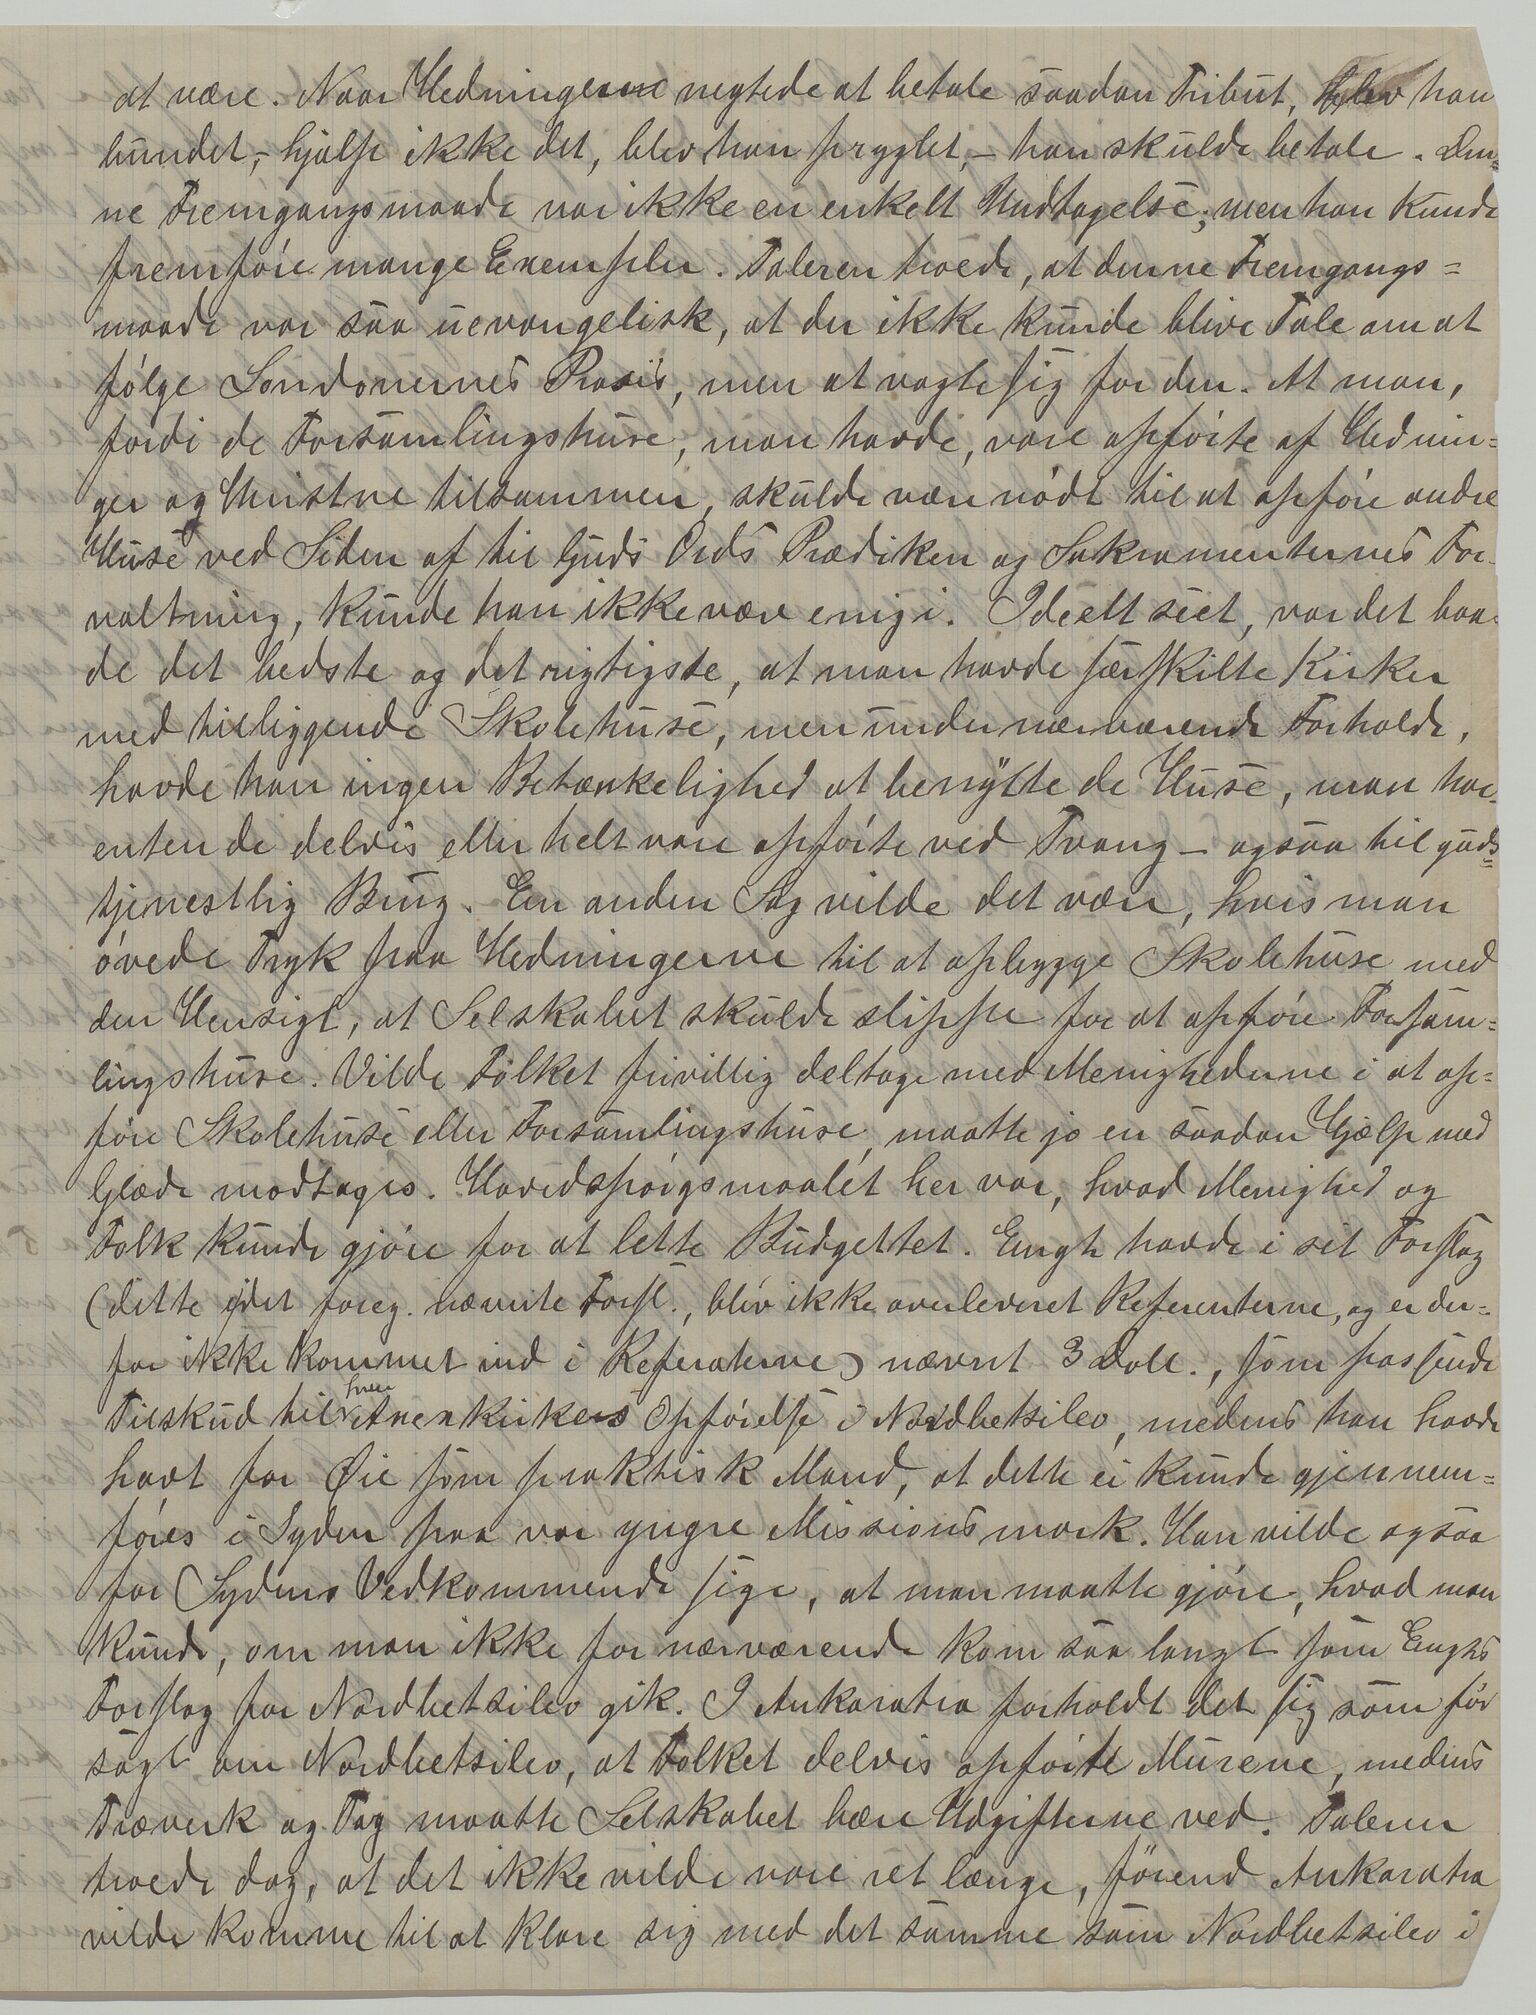 at være. Naar Hedningerne negtede at betale saadan Tribut, blev han
bundet, – hjalp ikke det, blev han pryglet, – han skulde betale. Den-
ne Fremgangsmaade var ikke en enkelt Undtagelse; men han kunde
fremføre mange Exempler. Taleren troede, at denne Fremgangs=
maade var saa uevangelisk, at der ikke kunde blive Tale om at
følge Londonernes Praxis, men at vogte sig for den. At man,
fordi de Forsamlingshuse, man havde, vare opførte af Hednin=
ger og Christne tilsammen, skulde være nødt til at opføre andre
Huse ved Siden af til Guds Ords Prædiken og Sakramenternes For-
valtning, kunde han ikke være enig i. Ideelt seet, var det baa-
de det bedste og det rigtigste, at man havde særskilte Kirker
med tilliggende Skolehuse, men under nærværende Forholde,
havde han ingen Betænkelighed at benytte de Huse, man har,
enten de delvis eller helt vare opførte ved Tvang – ogsaa til guds=
tjenestlig Brug. En anden Sag vilde det være, hvis man
øvede Tryk paa Hedningerne til at opbygge Skolehuse med
den Hensigt, at Selskabet skulde slippe for at opføre Forsam=
lingshuse. Vilde Folket frivillig deltage med Menighederne i at op=
føre Skolehuse eller Forsamlingshuse, maatte jo en saadan Hjælp med
Glæde modtages. Hovedspørgsmaalet her var, hvad Menighed og
Folk kunde gjøre for at lette Budgettet. Engh havde i sit Forslag
(dette i det foreg. nævnte Forsl., blev ikke overleveret Referenterne, og er der=
for ikke kommet ind i Referaterne) nævnt 3 Doll., som passende
Tilskud til hver Anexkirkes Opførelse i Nordbetsileo, medens han havde
havt for Øie som praktisk Mand, at dette ei kunde gjennem=
føres i Syden paa vor yngre Missionsmark. Han vilde ogsaa
for Sydens Vedkommende sige, at man maatte gjøre, hvad man
kunde, om man ikke for nærværende kom saa langt som Enghs
Forslag for Nordbetsileo gik. I Ankaratra forholdt det sig som før
sagt om Nordbetsileo, at Folket delvis opførte Murene, medens
Træverk og Tag maatte Selskabet bære Udgifterne ved. Taleren
troede dog, at det ikke vilde vare ret længe, førend Ankaratra
vilde komme til at klare sig med det samme som Nordbetsileo i